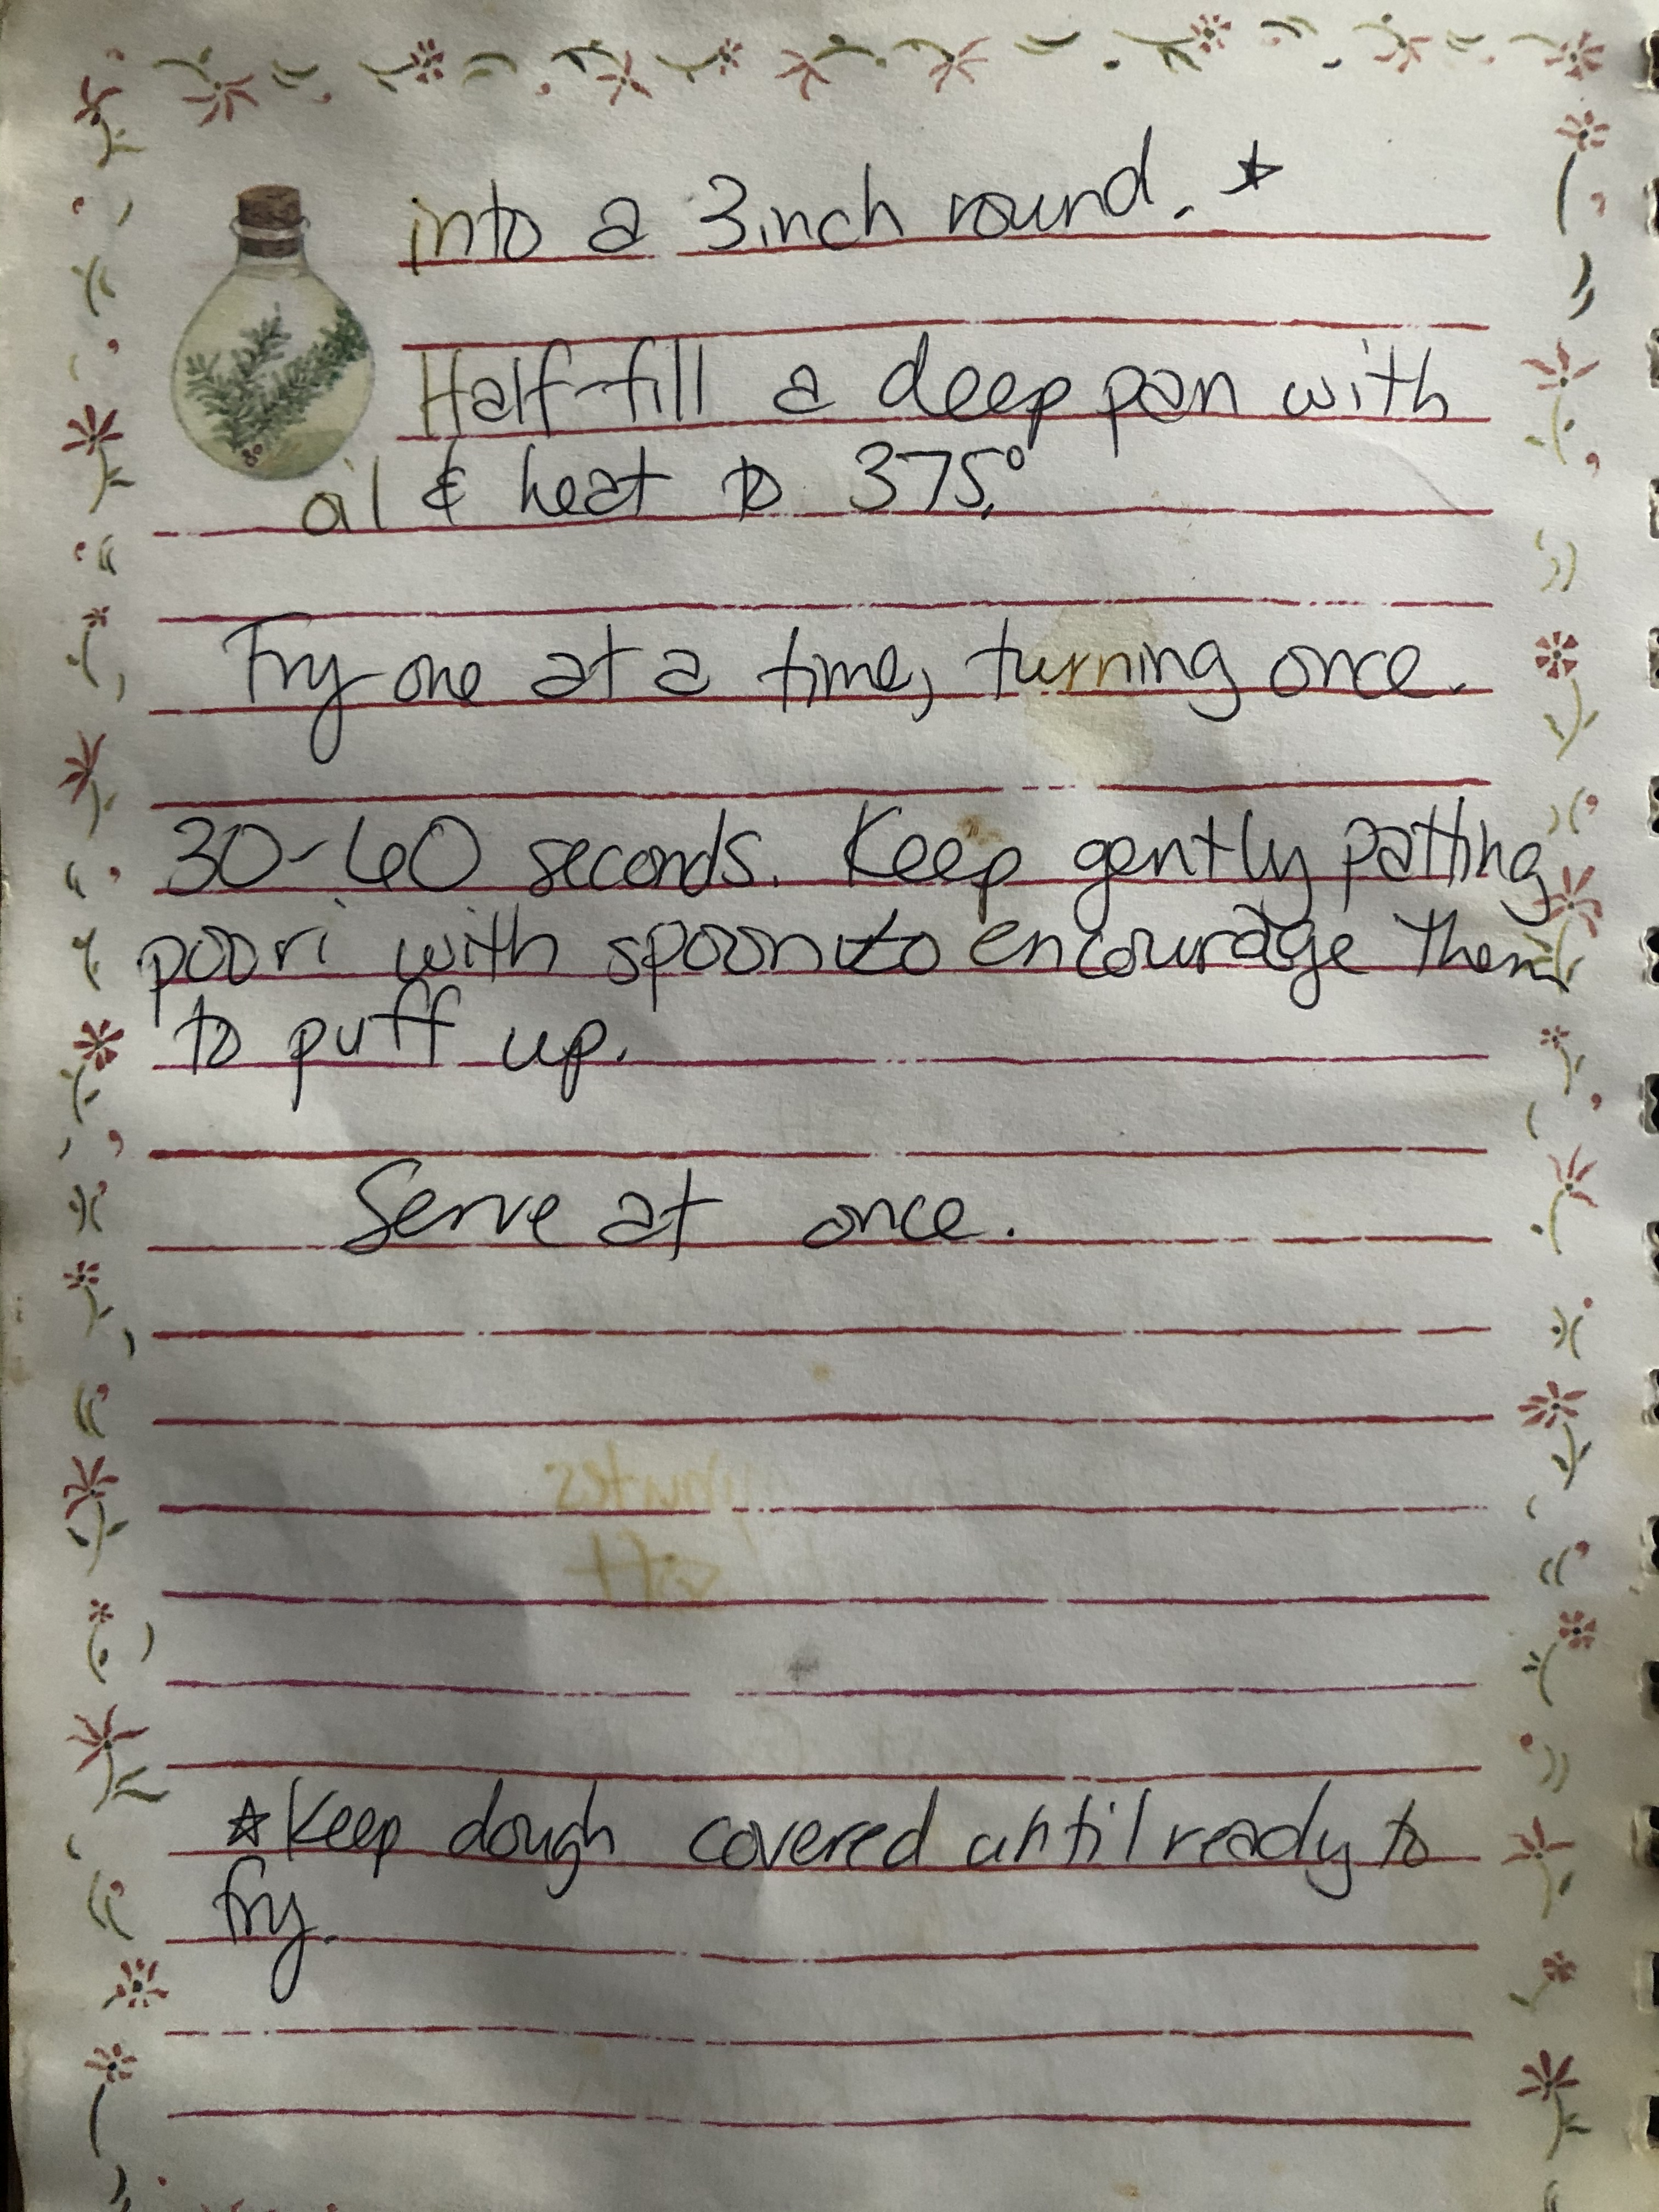 into a 3 inch round. ☆
Half-fill a deep pan with
oil & heat to 375.°
Fry one at a time, turning once.
30-60 seconds. Keep gently patting
poori with spoon to encourage them
to puff up.
Serve at once.
☆Keep dough covered until ready to
fry.